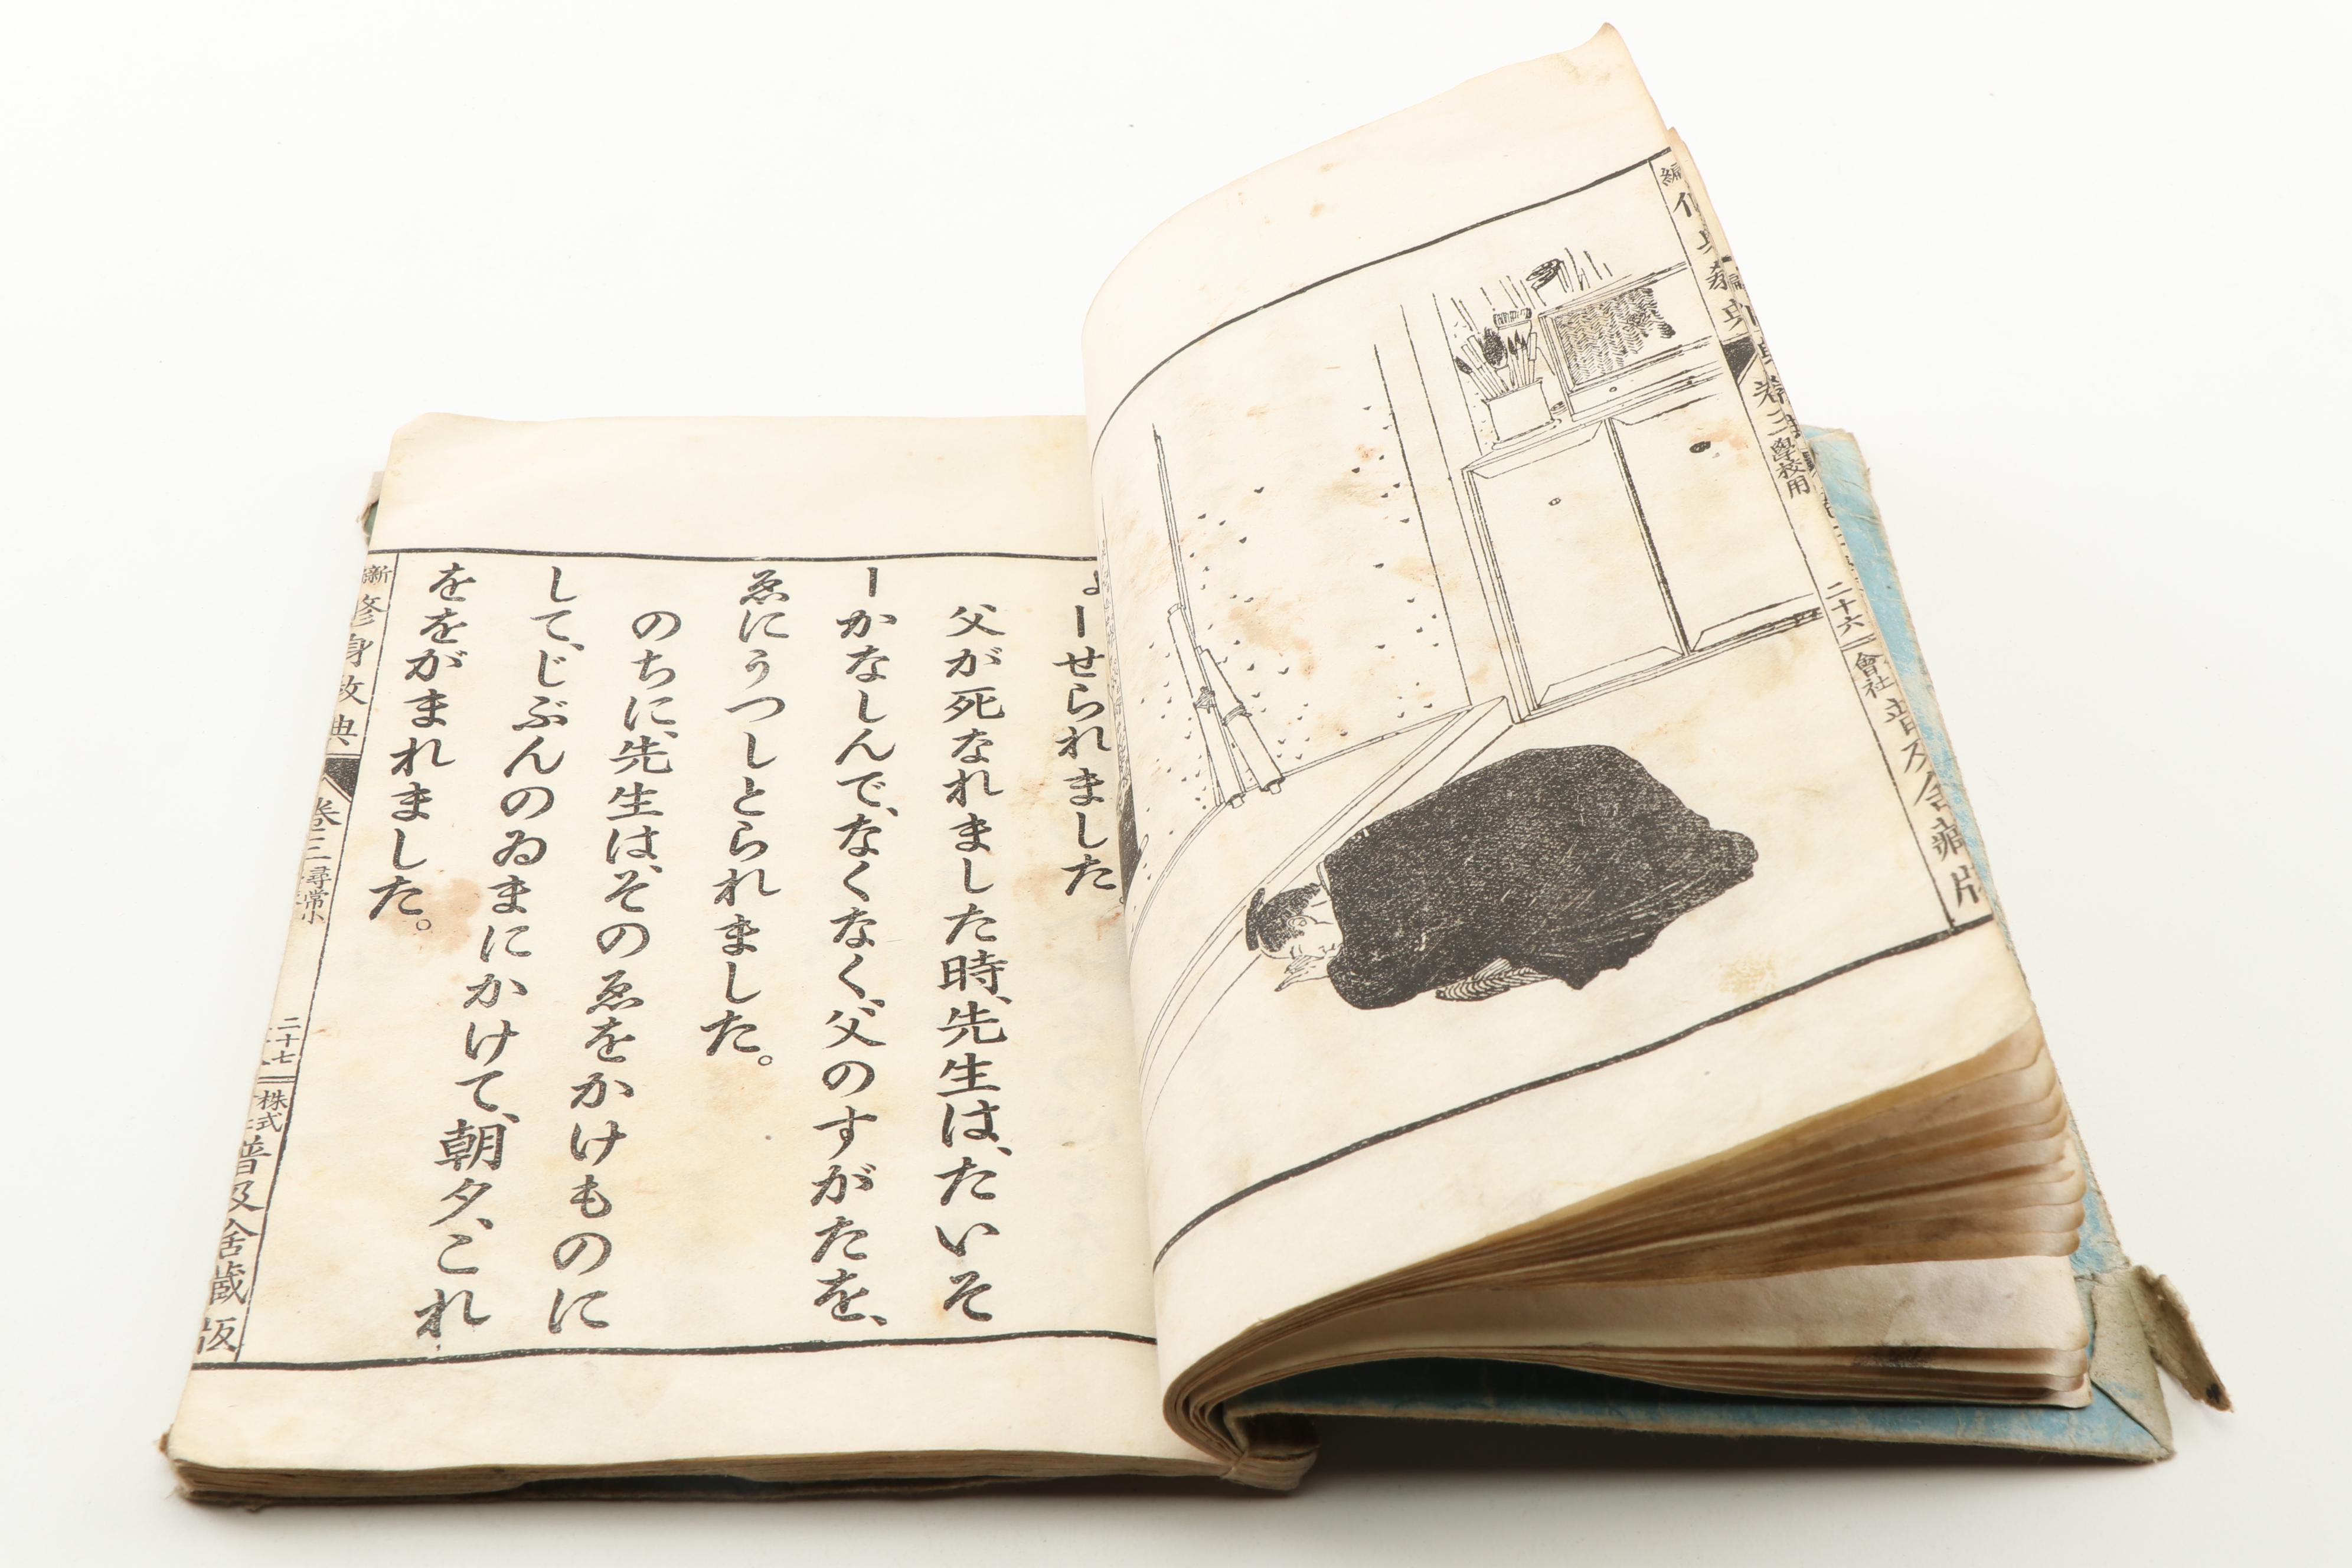 二十六
會社
學校用
よーせられました。
父が死なれました時、先生は、たいそ
ーかなしんで、なくなく、父のすがたを、
ゑにうつしとられました。
のちに、先生は、そのゑをかけものに
して、じぶんのゐまにかけて、朝夕、これ
ををがまれました。
修身教典
卷三
尋常小
二十七
株式
普及舎蔵版